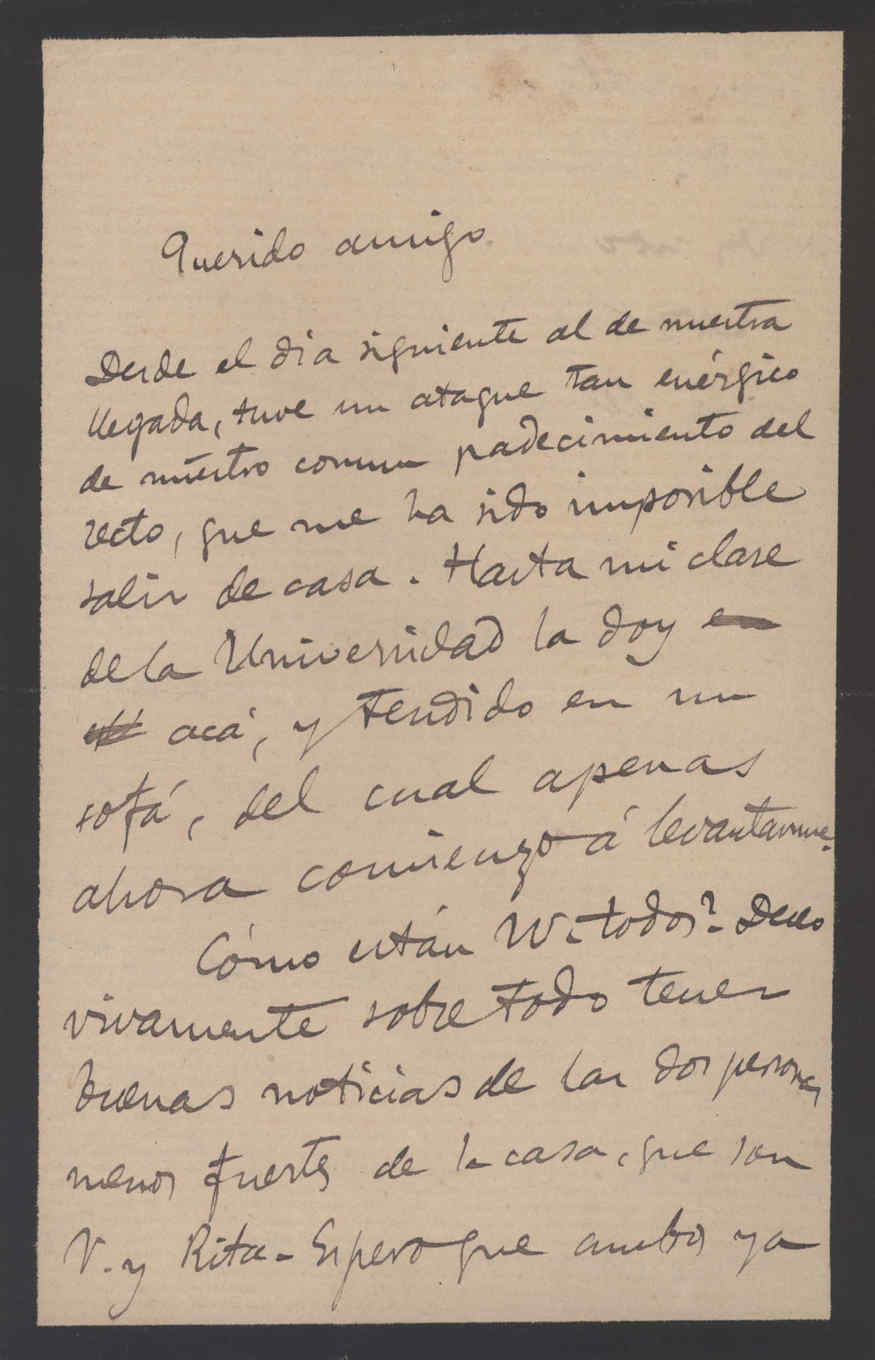 Querido amigo
Desde el dia siguiente al de nuestra
llegada, tuve un ataque tan enérgico
de nuestro comun padecimiento del
recto, que me ha sido imposible
salir de casa. Hasta mi clase
de la Universidad la doy en
acá, y tendido en un
sofá, del cual apenas
ahora comienzo á levantarme.
Cómo están VV. todos? Deseo
vivamente sobre todo tener
buenas noticias de las dos personas
menos fuertes de la casa, que son
V. y Rita. Espero que ambos ya